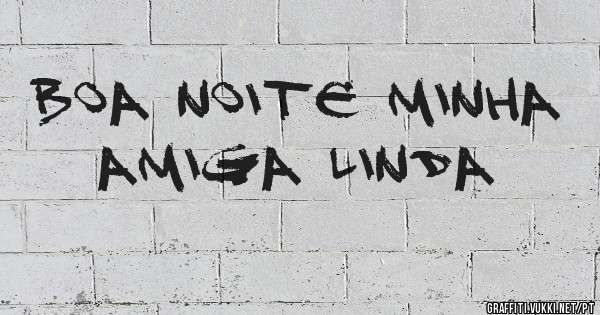 BOA NOITE MINHA
AMIGA LINDA
GRAFFITI.VUKKI.NET/PT